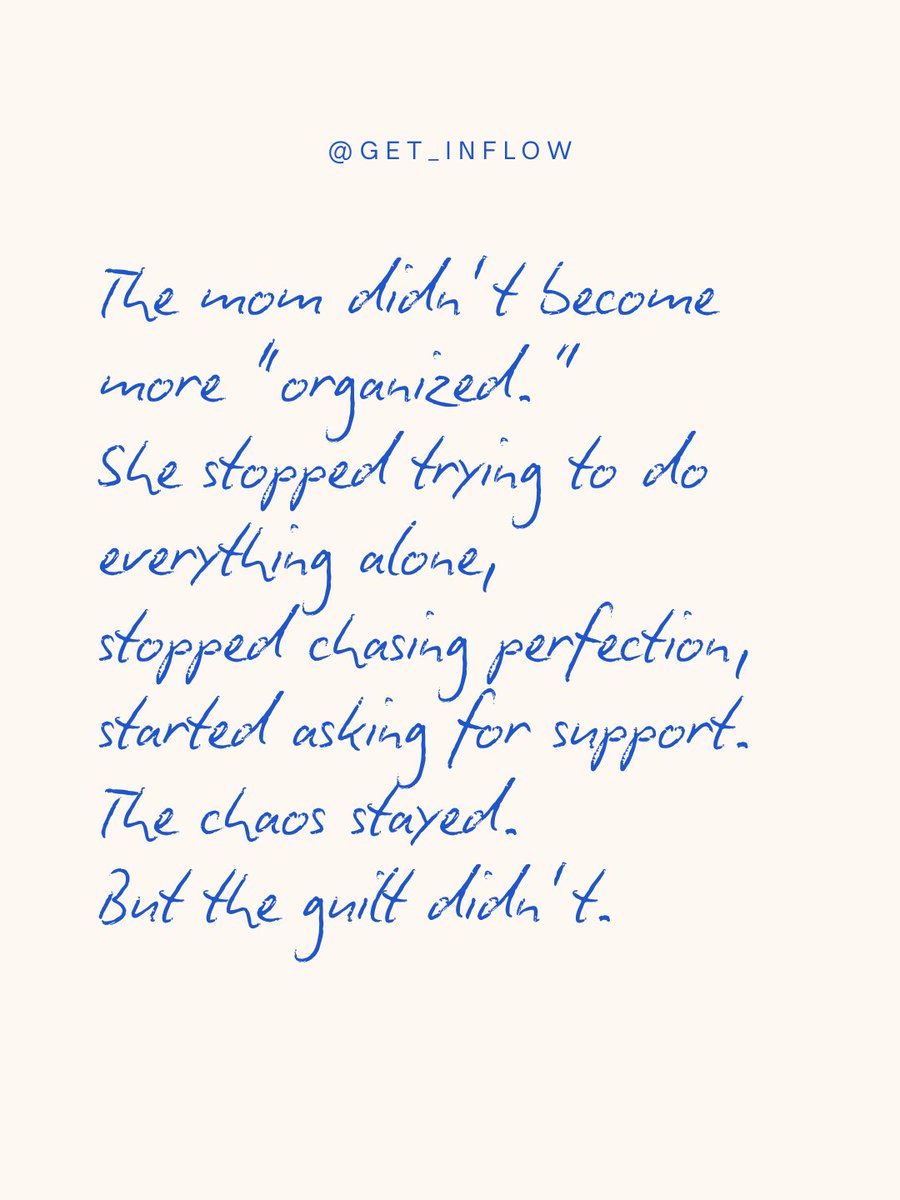 @GET_INFLOW
The mom didn't become
more "organized."
She stopped trying to do
everything alone,
stopped chasing perfection,
started asking for support.
The chaos stayed.
But the guilt didn't.